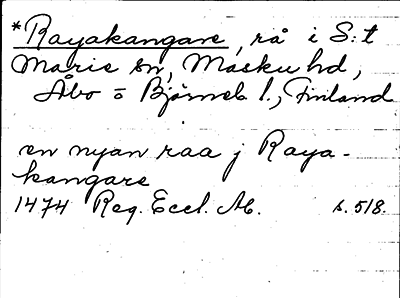 *Rayakangare, rå i S:t
Marie sn, Masku hd,
Åbo o Björneb l., Finland
en nyan raa j Raya-
kangare
1474 Reg. Eccl. Ab. s. 518.